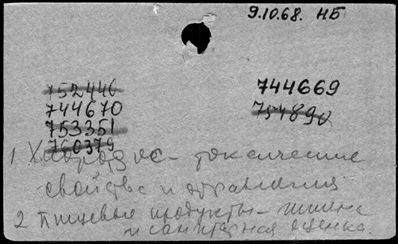 9.10.68. НБ
752446
744669
744670
754890
753351
760379
1 Хлорофос - токсические
свойства и отравления
2 Пищевые продукты - гигиена
и санитарная оценка.